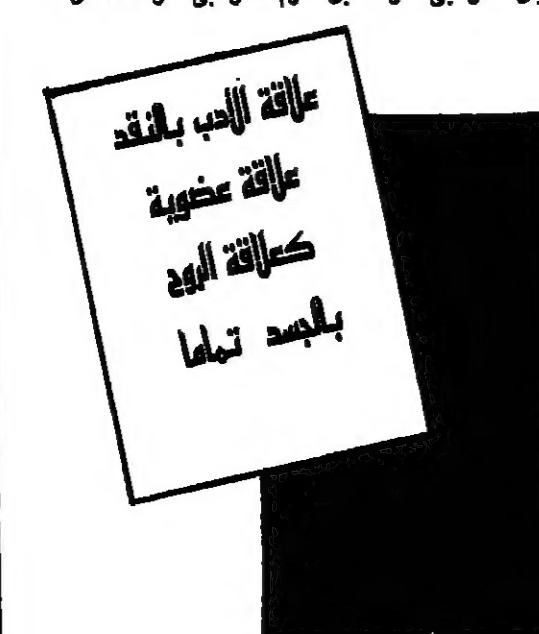 علاقة الأدب بالنقد
علاقة عضوية
كعلاقة الروح
بالجسد تماما